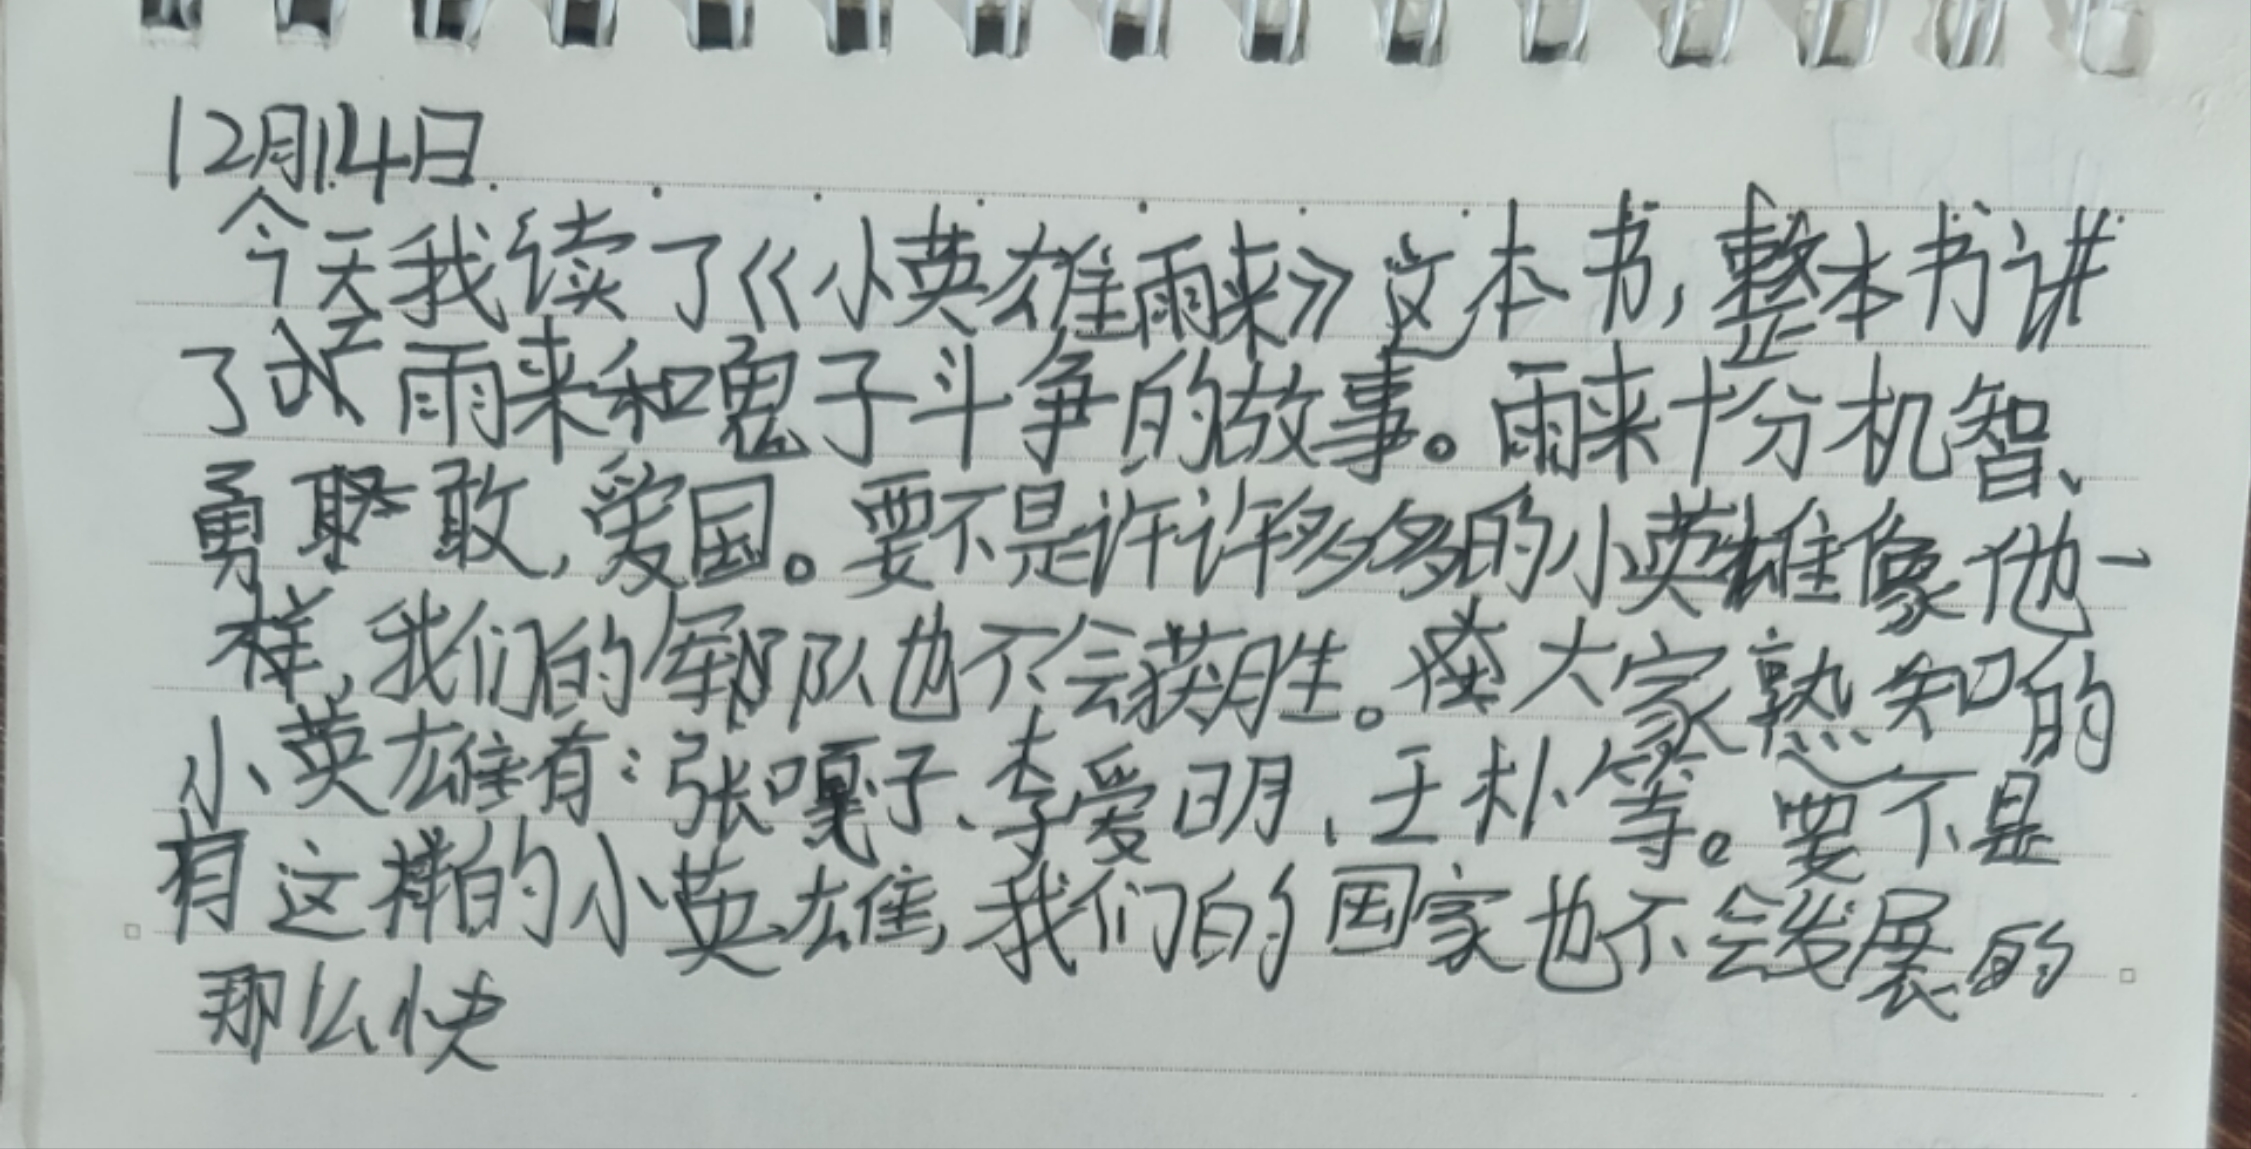 12月14日
今天我读了《小英雄雨来》这本书,整本书讲
了雨来和鬼子斗争的故事。雨来十分机智、
勇敢,爱国。要不是许许多多的小英雄像他一
样,我们的军队也不会获胜。大家熟知的
小英雄有:张嘎子、李爱明、王朴等。要不是
有这样的小英雄,我们的国家也不会发展的
那么快